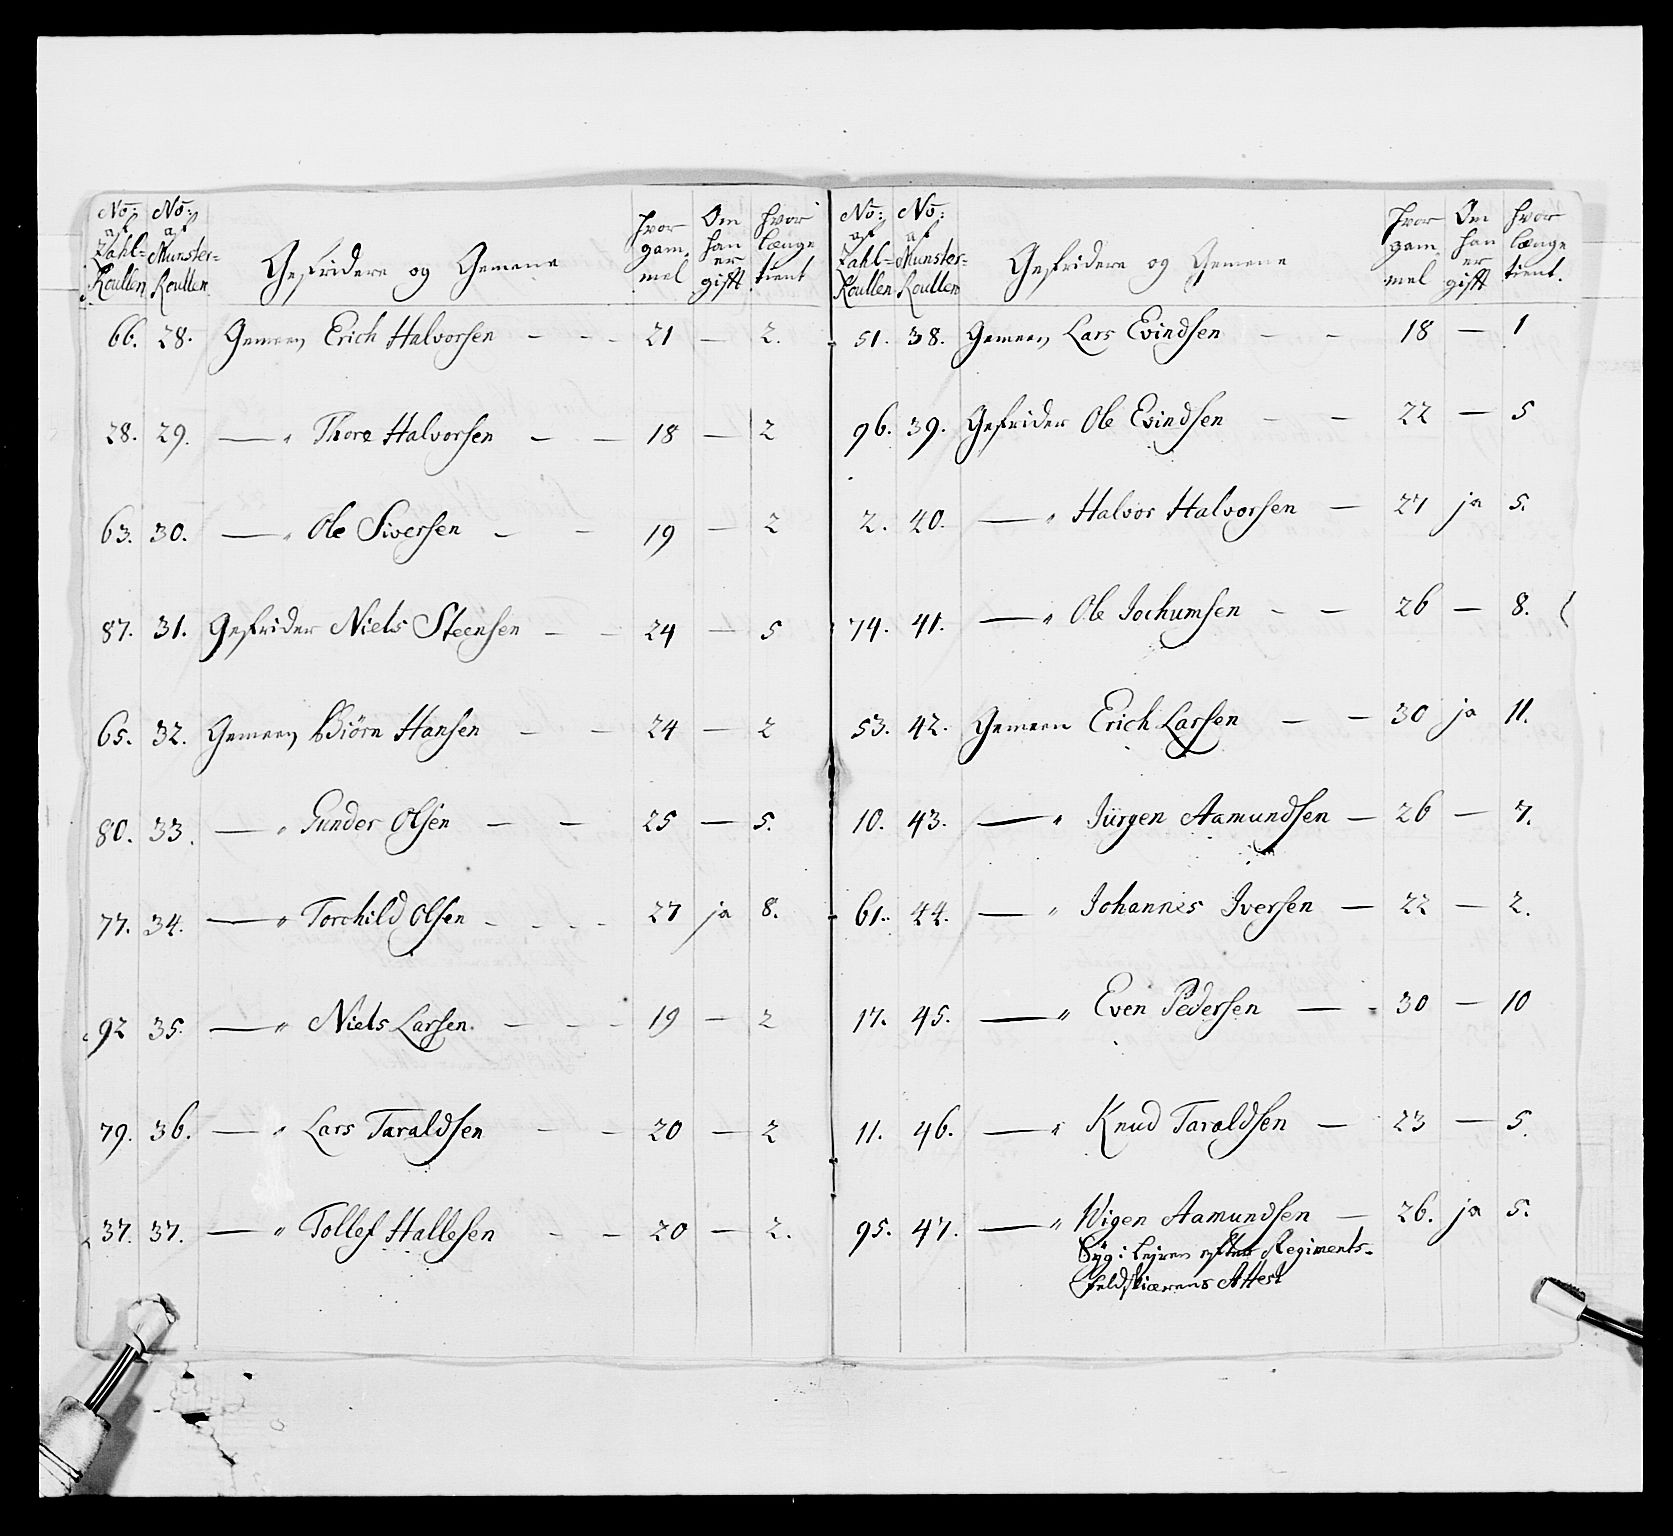 No: af Zahl= Roullen No: af Munster= Roullen Gefridere og Gemene hvor gam. mel Om han er gifft hvor længe tient
66. 28. Gemeen Erich Halvorsen — - - 21 — 2.
28. 29. —— " Thore Halvorsen — — 18 — 2
63. 30. —— " Ole Siversen — — 19 — 2
87. 31. Gefrider Niels Steensen — — 24 — 5
65. 32. Gemeen Biörn Hansen — — 24 — 2
80. 33. —— " Gunder Olsen — — 25 — 5.
77. 34. —— " Torchild Olsen - - - - 27 ja 8.
92 35. —— " Niels Larsen. — - - 19 — 2
79. 36. —— " Lars Taraldsen — — 20 — 2
37. 37. —— " Tollef Hallesen — — 20 — 2.
No: af Zahl= Roullen No: af Munster= Roullen Gefridere og Gemene hvor gam. mel Om han er gifft hvor længe tient.
51. 38. Gemeen Lars Evindsen — - 18 — 1
96. 39. Gefrider Ole Evindsen — — 22 — 5
2. 40. —— " Halvor Halvorsen — 27 ja 5.
74. 41. —— " Ole Jochumsen - — 26 — 8.
53. 42. Gemeen Erich Larsen — — 30 ja 11.
10. 43. —— " Jürgen Aamundsen — 26 — 7.
61. 44. —— " Johannes Iversen — 22 — 2.
17. 45. —— " Even Pedersen — - 30 — 10
11. 46. —— " Knud Taraldsen — 23 — 5.
95. 47. —— " Wigen Aamundsen — 26. ja 5.
Syg i Lejren efter Regiments-
Feldskiærens Attest